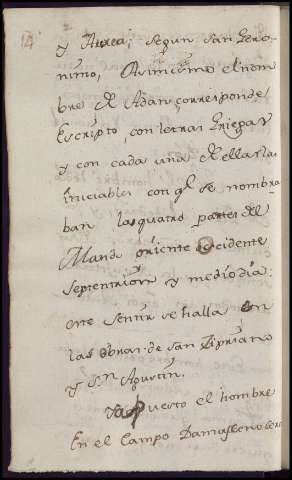 14
y Aurea; segun san Gero-
nimo, Asimismo el nom
bre de Adan, corresponde
Escripto, con letras Griegas
y con cada una de ellas las
iniciables con q.l se nombra
ban las quatro partes del
Mundo oriente occidente
septentrion y medio dia:
este sentir se halla en
las obras de san Cipriano
y S.n Agustin.
Puesto el hombre
En el Campo Damasceno